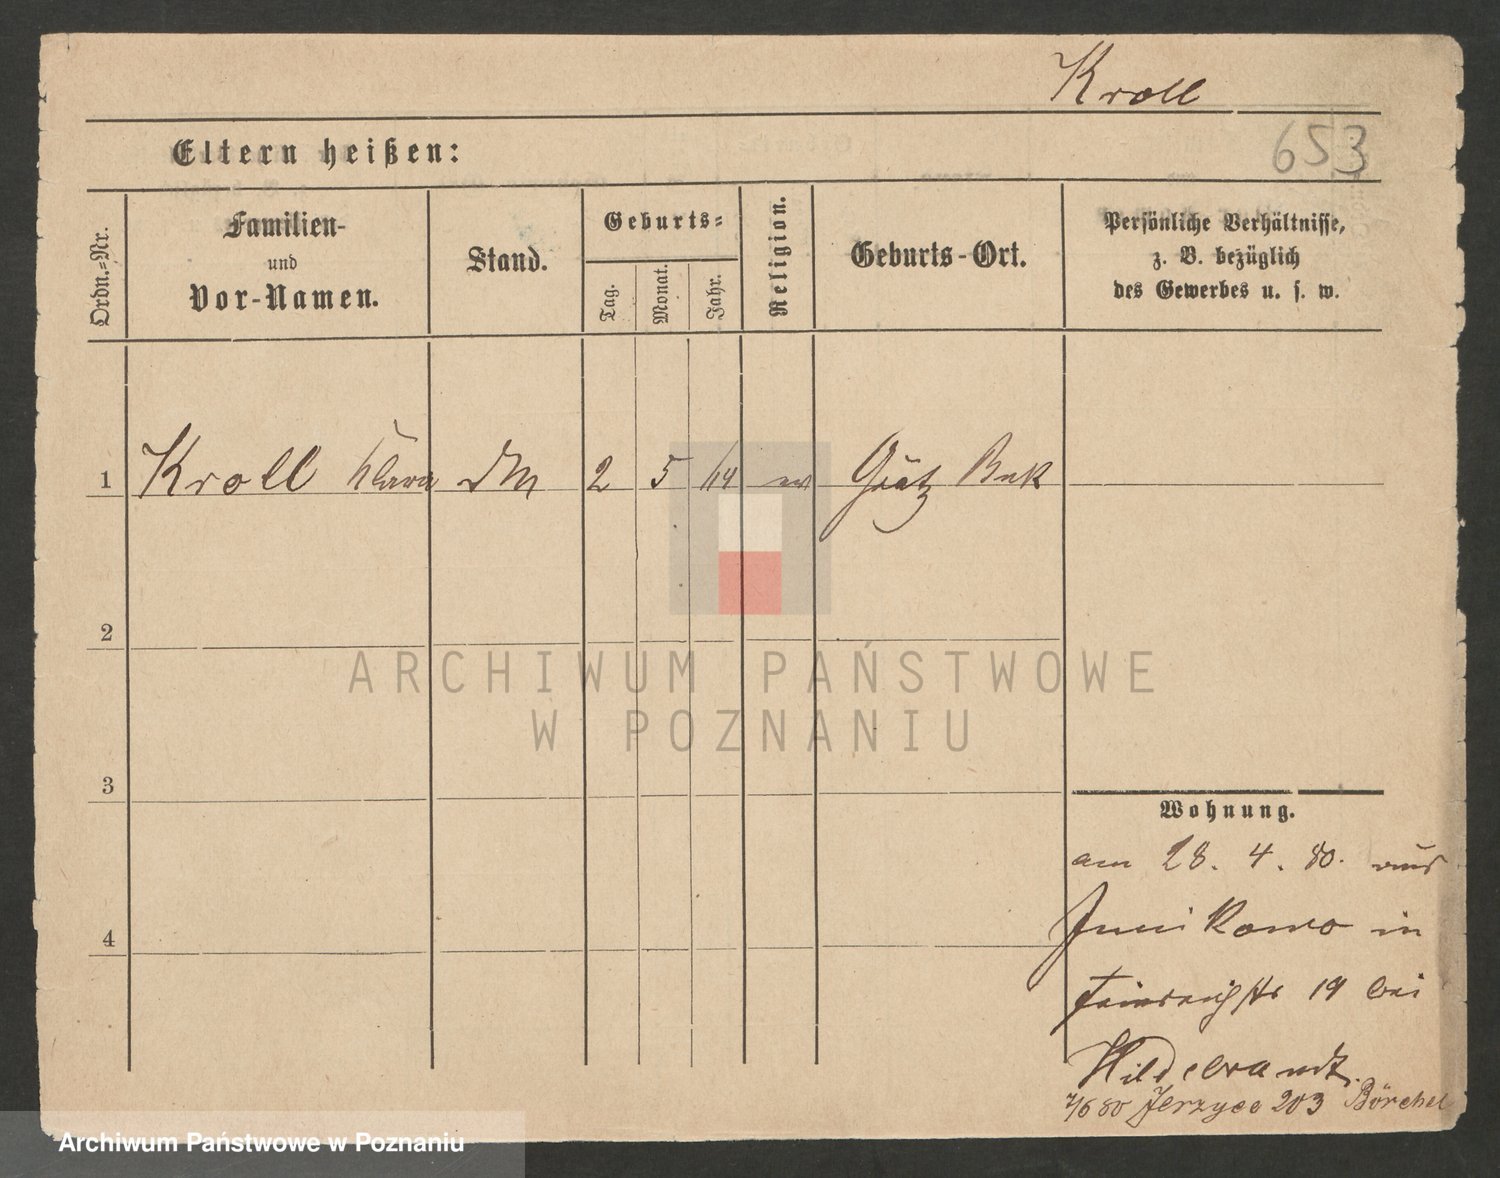 Kroll
653
Eltern heißen:
Ordn.=Nr.
Familien-
und
Vor-Namen.
Stand.
Geburts=
Tag.
Monat.
Jahr.
Religion.
Geburts-Ort.
Persönliche Verhältnisse,
z. B. bezüglich
des Gewerbes u. s. w.
1 Kroll Klara 2 5 ev Grätz Buk
2
ARCHIWUM PAŃSTWOWE
W POZNANIU
3
Wohnung.
am 28. 4. 80. aus
4
Junikowo in
19 bei
Hildebrandt.
7/6 80 Jerzyce 203 Börchel
Archiwum Państwowe w Poznaniu